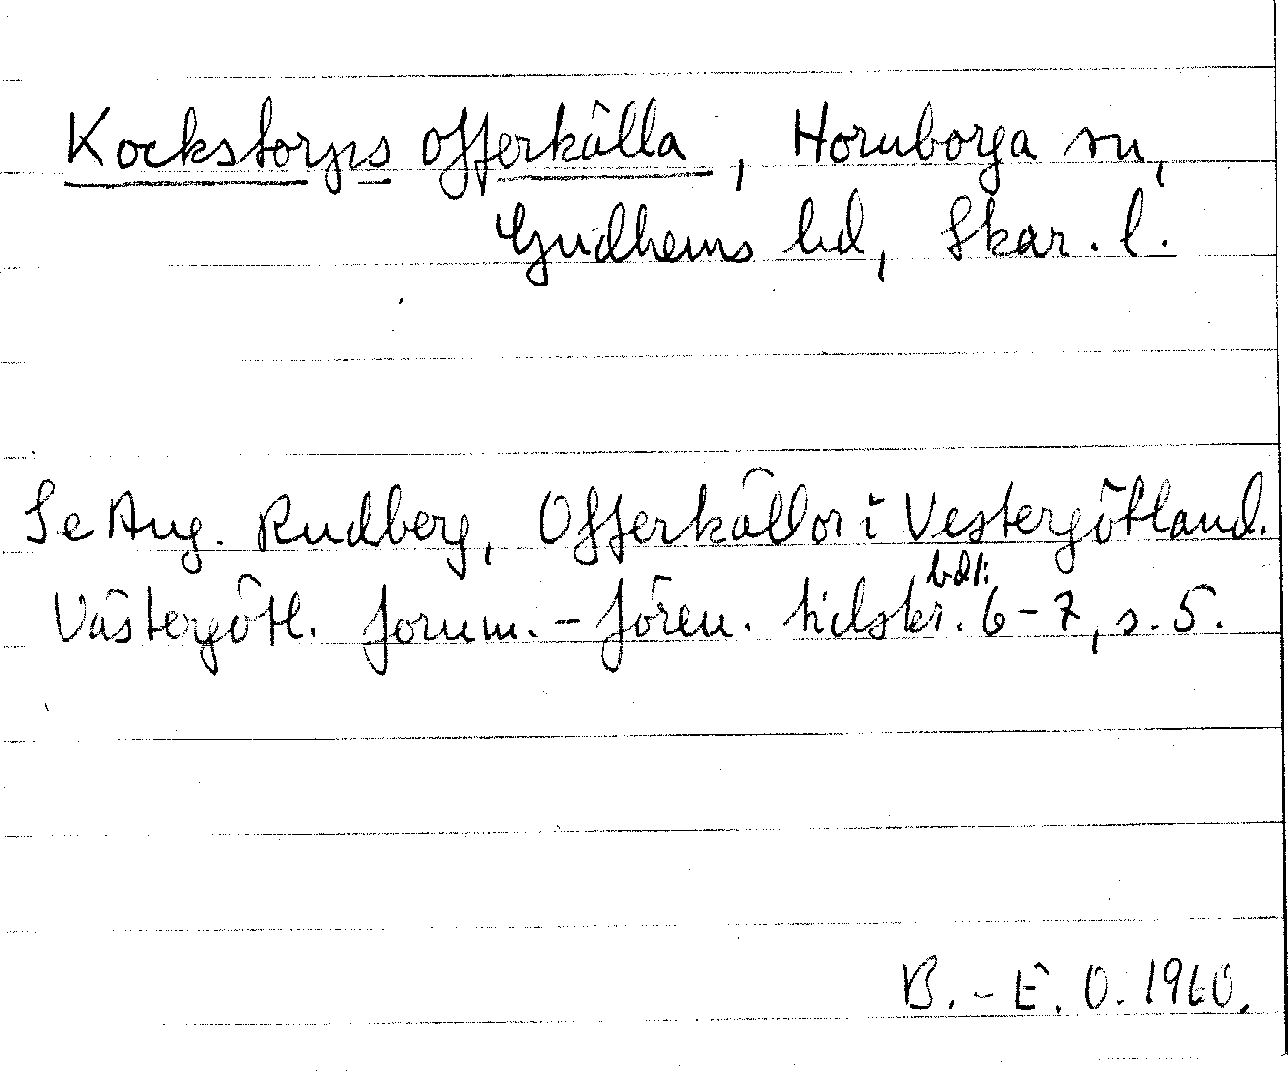 Kockstorps offerkälla, Hornborga sn,
Gudhems hd, Skar. l.
Se Aug. Rudberg, Offerkällor i Vestergötland.
Västergötl. fornm.-fören. tidskr. bd 1: 6-7, s. 5.
B.-E. O. 1960.